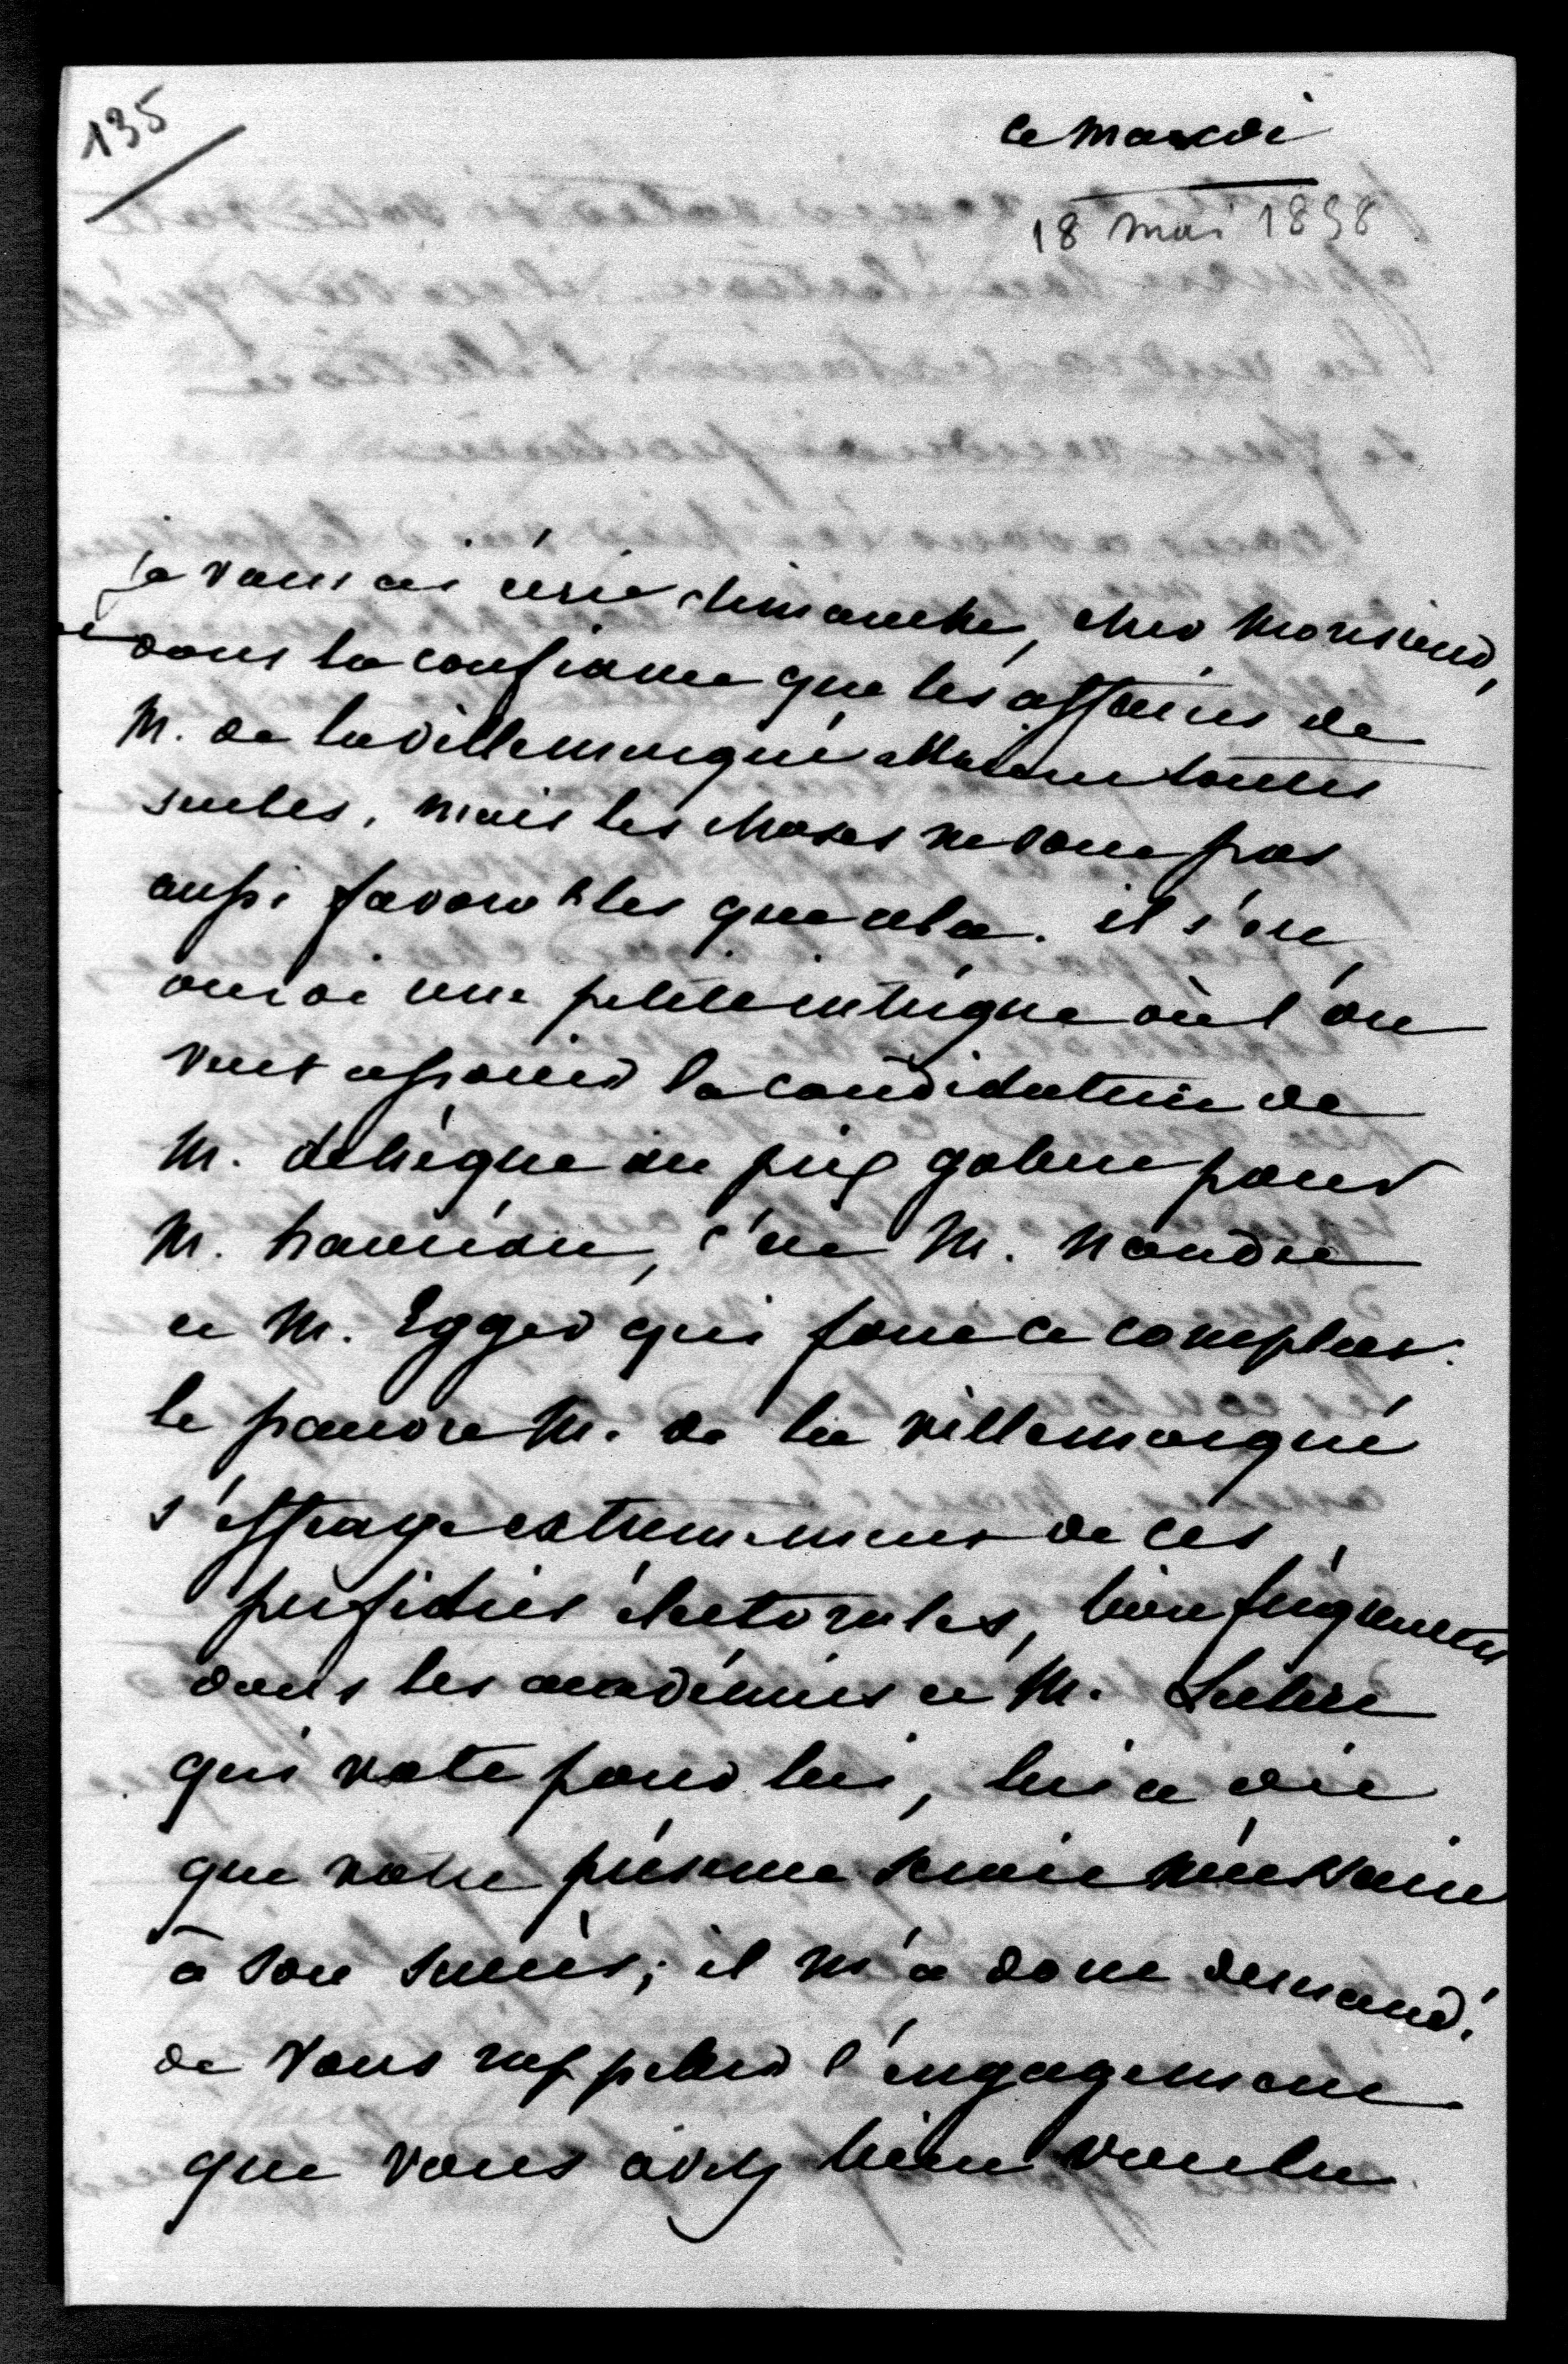 135
ce mardi
18 mai 1858
je vous ai écrit dimanche, cher Monsieur,
dans la confiance que les affaires de
M. de la Villemarqué allaient toutes
seules, mais les choses ne sont pas
aussi favorables que cela. il s'est
ourdi une petite intrigue où l'on
veut assurer la candidature de
M. delèque au prix gobert pour
M. hauréau, c'est M. Naudet
et M. Egger qui font ce complot.
le pauvre M. de la villemarqué
s'effraye extrêmement de ces
perfidies électorales, bien fréquentes
dans les académies et M.
qui vote pour lui, lui a dit
que votre présence serait nécessaire
à son succès; il m'a donc demandé
de vous rappeler l'engagement
que vous avez bien voulu